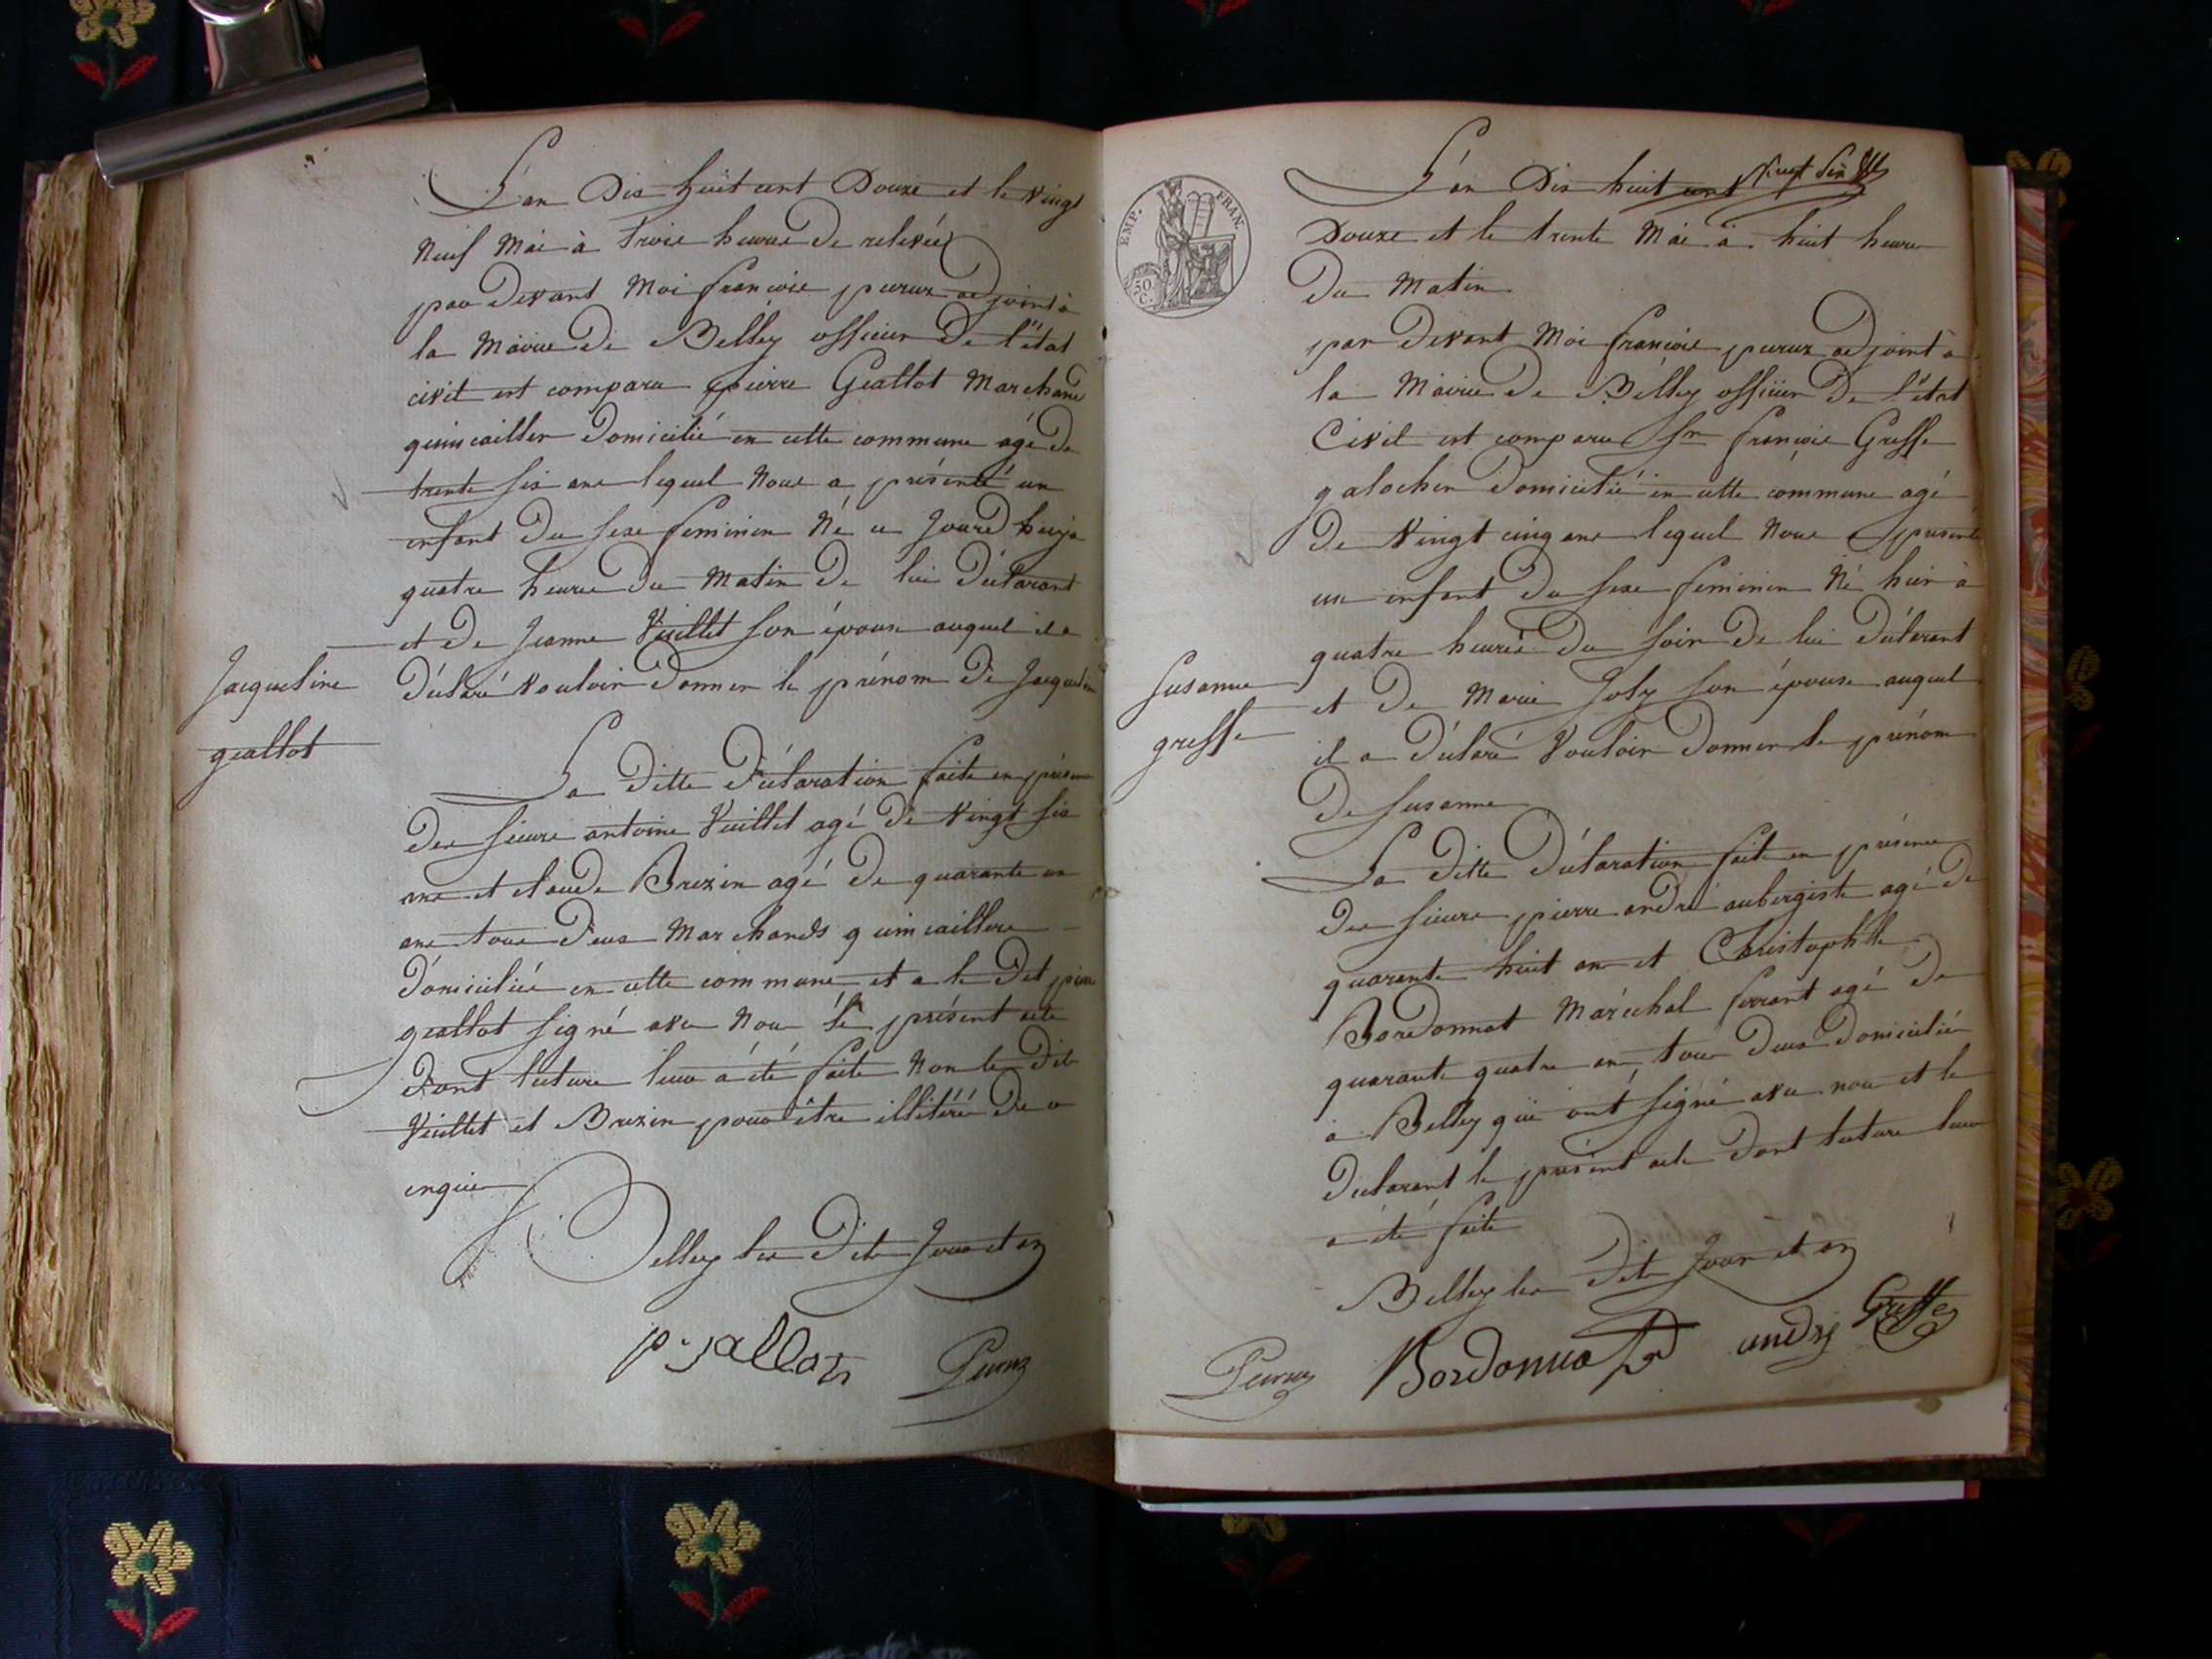 L'an Dix huit cent Douze et le vingt
neuf Mai à trois heures De relevée
par Devant Moi françois peruz adjoint à
la Mairie De Belley officier De l'état
civil est comparu pierre Geallot Marchand
quincailler Domicilié en cette commune agé De
trente six ans lequel Nous a présenté un
enfant Du sexe feminin Né ce Jourd'huy a
quatre heures Du Matin De lui Déclarant
et De Jeanne Vuillet son épouse auquel il a
Déclaré vouloir Donner le prénom De Jacqueline
Jacqueline
geallot
La Ditte Déclaration faite en présence
Des sieurs antoine Vuillet agé De vingt six
ans et claude Brezin agé De quarante un
ans tous Deux Marchands quincaillers
Domiciliés en cette commune et a le Dit pierre
geallot signé avec Nous le présent acte
Dont lecture leur a été faite Non les Dits
Vuillet et Brezin pour être illitérés De ce
enquis
Belley les Dits Jour et an
p. jallot
Peruz
EMP. FRAN.
50 C.
L'an Dix huit cent
Douze et le trente Mai à huit heures
Du Matin
par Devant Moi françois peruz adjoint à
la Mairie De Belley officier De l'état
Civil est comparu Sr françois Greffe
galocher Domicilié en cette commune agé
De Vingt cinq ans lequel Nous a présenté
un enfant Du sexe feminin Né hier à
quatre heures Du soir De lui Déclarant
et De Marie Joly son épouse auquel
il a Déclaré Vouloir Donner le prénom
De Susanne
Susanne
greffe
La Ditte Déclaration faite en présence
Des sieurs pierre andré aubergiste agé De
quarante huit ans et Christophle
Bordonnat Maréchal ferrant agé De
quarante quatre ans, tous Deux Domiciliés
a Belley qui ont signé avec nous et le
Déclarant le présent acte Dont lecture leur
a été faite
Belley les Dits Jour et an
Peruz
Bordonnat
andré
Greffe